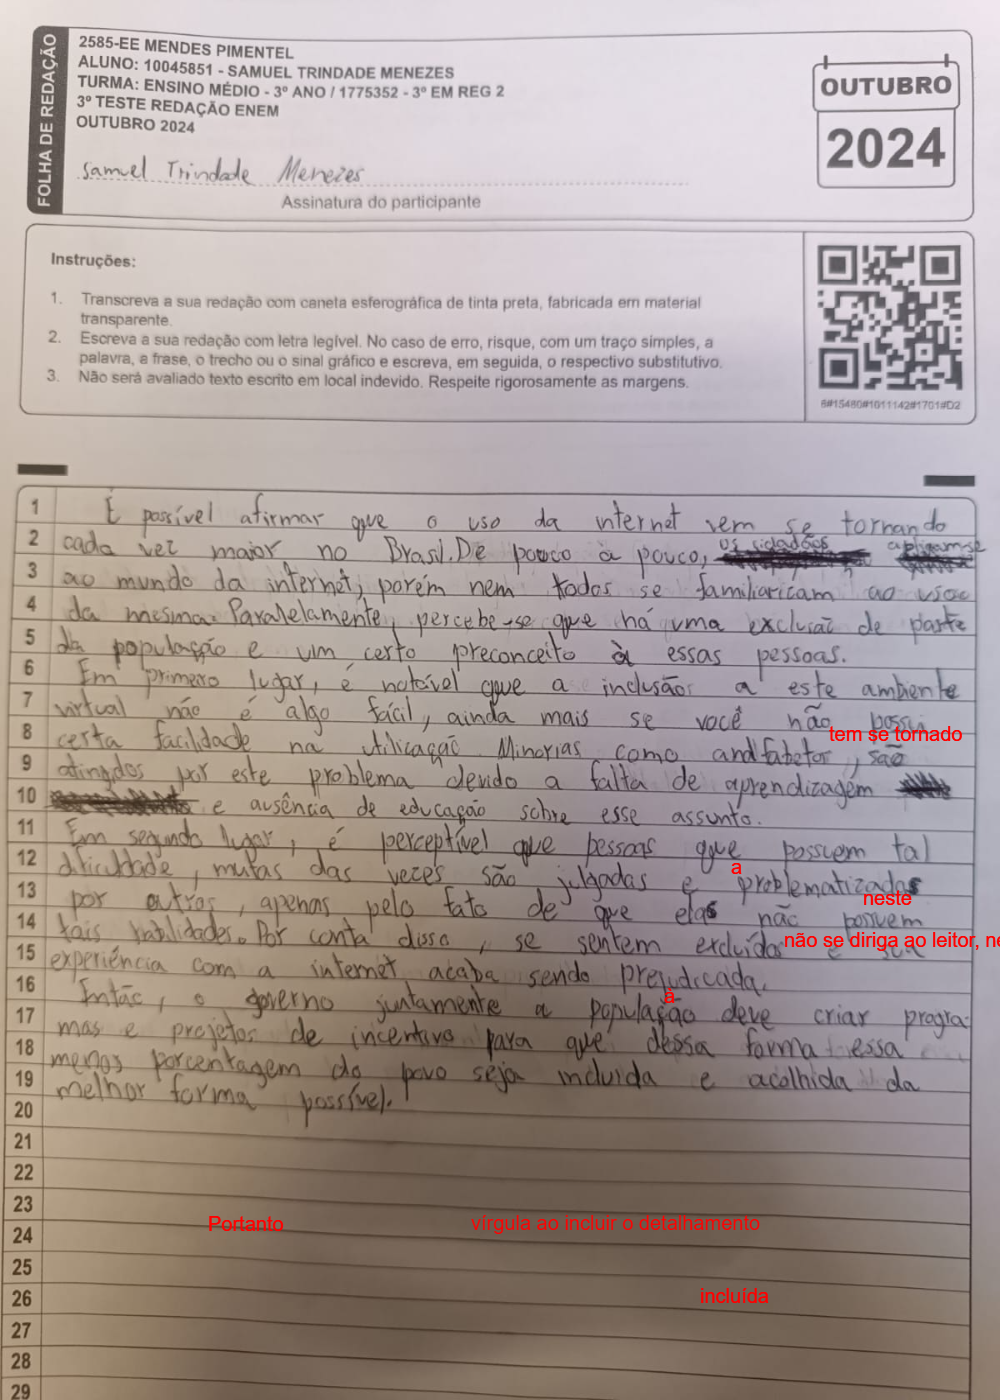 FOLHA DE REDAÇÃO
2585-EE MENDES PIMENTEL
ALUNO: 10045851 - SAMUEL TRINDADE MENEZES
TURMA: ENSINO MÉDIO - 3º ANO / 1775352 - 3º EM REG 2
3º TESTE REDAÇÃO ENEM
OUTUBRO 2024
Samuel Trindade Menezes
Assinatura do participante
OUTUBRO
2024
Instruções:
1. Transcreva a sua redação com caneta esferográfica de tinta preta, fabricada em material
transparente.
2. Escreva a sua redação com letra legível. No caso de erro, risque, com um traço simples, a
palavra, a frase, o trecho ou o sinal gráfico e escreva, em seguida, o respectivo substitutivo.
3. Não será avaliado texto escrito em local indevido. Respeite rigorosamente as margens.
6#15480#1011142#1701#D2
1 É possível afirmar que o uso da internet vem se tornando
2 cada vez maior no Brasil. De pouco à pouco, os cidadãos
3 ao mundo da internet, porém nem todos se familiarizam ao uso
4 da mesma. Paralelamente, percebe-se que há uma exclusão de parte
5 da população e um certo preconceito à essas pessoas.
6 Em primeiro lugar, é notável que a inclusão a este ambiente
7 virtual não é algo fácil, ainda mais se você não possui
tem se tornado
8 certa facilidade na utilização Minorias como analfabetos, são
9 atingidos por este problema devido a falta de aprendizagem
10 e ausência de educação sobre esse assunto.
11 Em segundo lugar, é perceptível que pessoas que possuem tal
a
12 dificuldade, muitas das vezes são julgadas e problematizadas
neste
13 por outros, apenas pelo fato de que elas não possuem
não se diriga ao leitor, ne
14 tais habilidades. Por conta disso, se sentem excluídos e sua
15 experiência com a internet acaba sendo prejudicada.
à
16 Então, o governo juntamente a população deve criar progra-
17 mas e projetos de incentivo para que dessa forma essa
18 menos porcentagem do povo seja incluida e acolhida da
19 melhor forma possível.
20
21
22
23
Portanto vírgula ao incluir o detalhamento
24
25
26 incluída
27
28
29